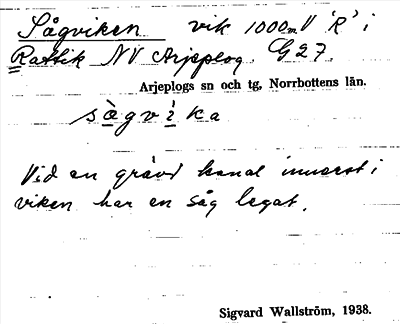 Sågviken vik 1000m V 'R' i
Rattik NV Arjeplog. G 27.
Arjeplogs sn och tg, Norrbottens län.
sågvika
Vid en grävd kanal innerst i
viken har en såg legat.
Sigvard Wallström, 1938.